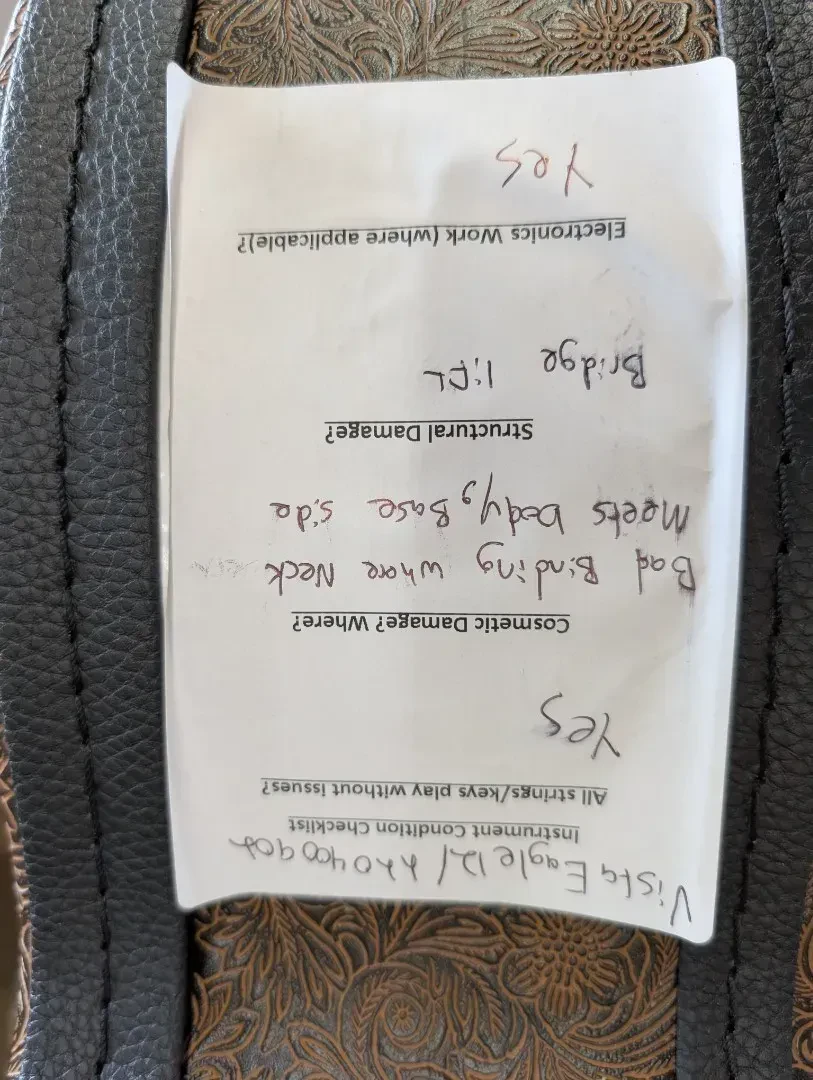 Vista Eagle 12/ 220400902
Instrument Condition Checklist
All strings/keys play without issues?
Yes
Cosmetic Damage? Where?
Bad Binding where Neck
Meets body, Base side
Structural Damage?
Bridge lift
Electronics Work (where applicable)?
Yes